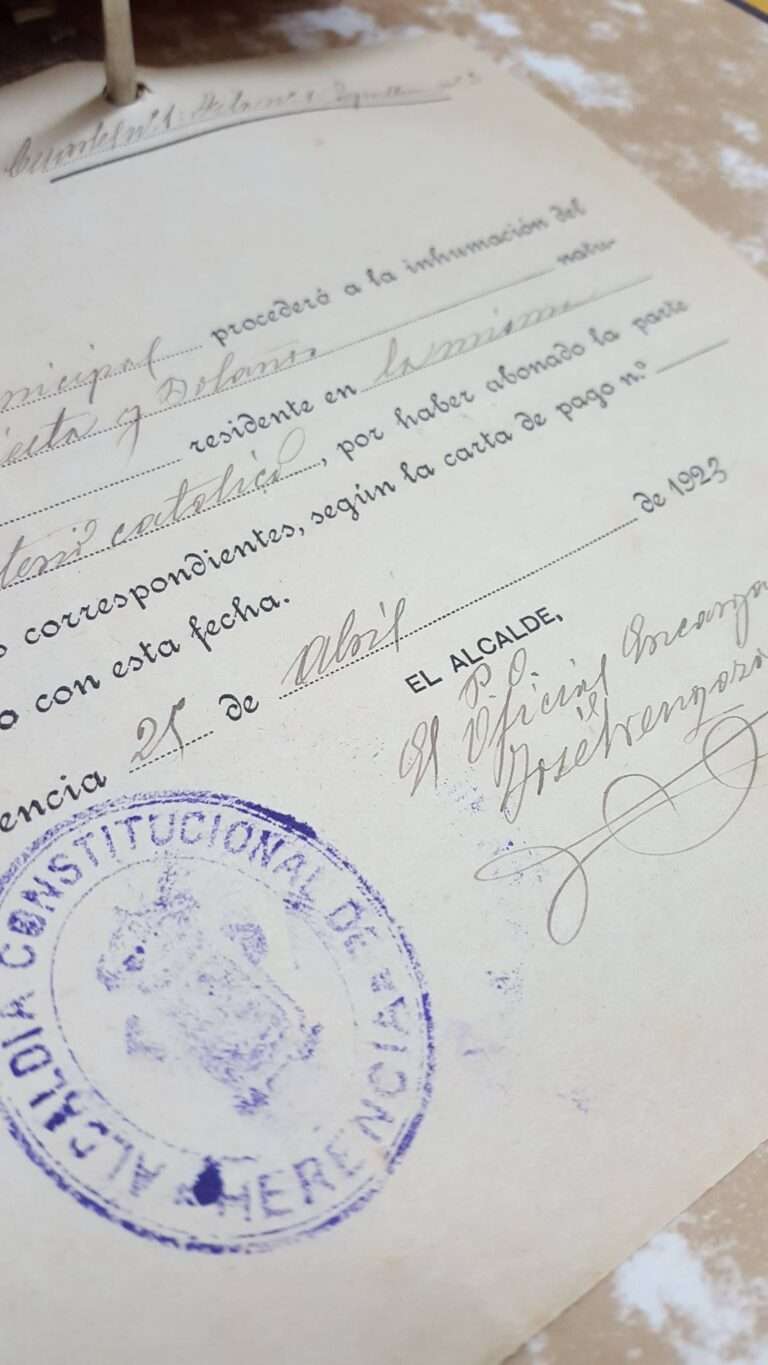 Cuartel nº 1
nicipal procederá a la inhumación del
y Bolaños natu-
residente en la misma
católico, por haber abonado la parte
s correspondientes, según la carta de pago n.º
o con esta fecha.
encia 25 de Abril de 1923
EL ALCALDE,
P. O.
El Oficial Encarga
José
ALCALDIA CONSTITUCIONAL DE HERENCIA